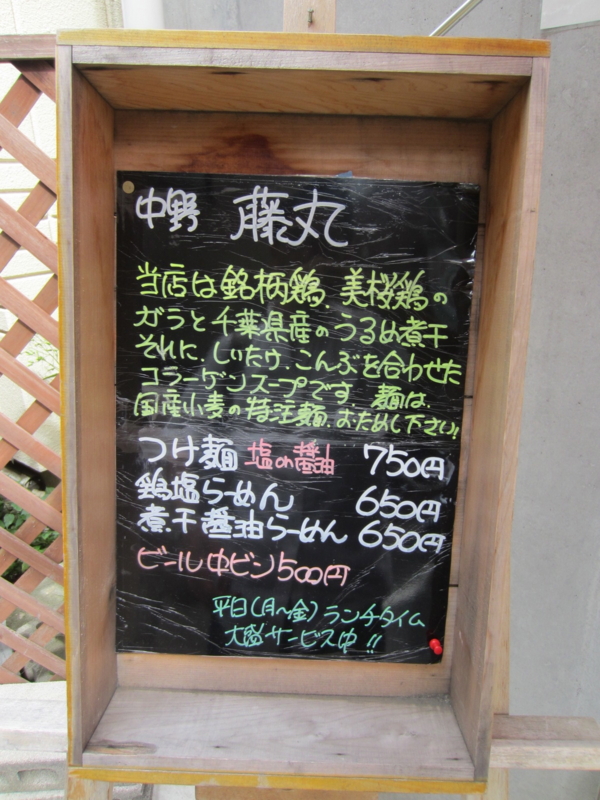 中野 藤丸
当店は銘柄鶏、美桜鶏の
ガラと千葉県産のうるめ煮干
それに、しいたけ、こんぶを合わせた
コラーゲンスープです。麺は、
国産小麦の特注麺、おためし下さい!
つけ麺 塩or醤油 750円
鶏塩らーめん 650円
煮干醤油らーめん 650円
ビール中ビン500円
平日(月~金)ランチタイム
大盛サービス中!!